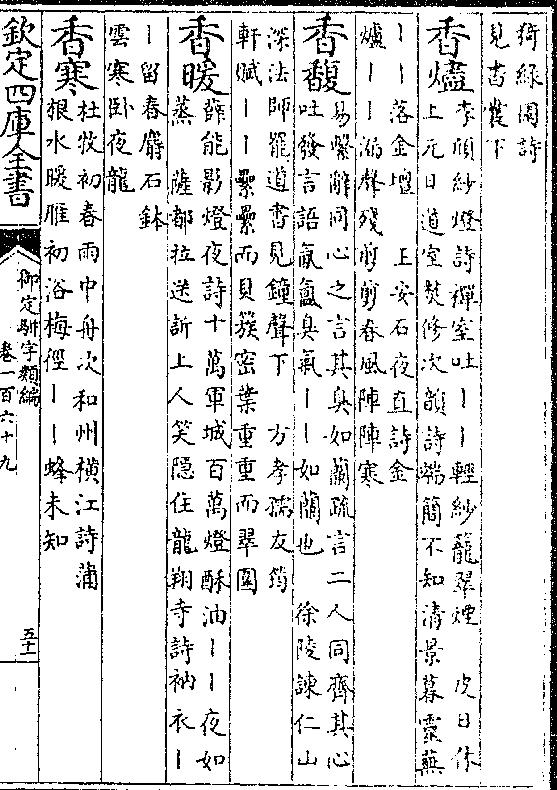 猗綠園詩
見杏叢下
香燼
李頎紗燈詩禪室吐丨丨輕紗籠翠煙　皮日休
上元日道室焚修次韻詩端簡不知清景暮靈蕪
丨丨落金壇　王安石夜直詩金
爐丨丨漏聲殘剪剪春風陣陣寒
香馥
易繫辭同心之言其臭如蘭疏言二人同齊其心
吐發言語氤氳臭氣丨丨如蘭也　徐陵諫仁山
深法師罷道書見鐘聲下　方孝孺友筠
軒賦丨丨纍纍而貝簇密葉重重而翠圍
香暖
薛能影燈夜詩十萬軍城百萬燈酥油丨丨夜如
蒸　薩都拉送訢上人笑隱住龍翔寺詩衲衣丨
丨留春麝石鉢
雲寒卧夜龍
香寒
杜牧初春雨中舟次和州橫江詩蒲
根水暖雁初浴梅徑丨丨蜂未知
欽定四庫全書
御定駢字類編
卷一百六十九
五十一